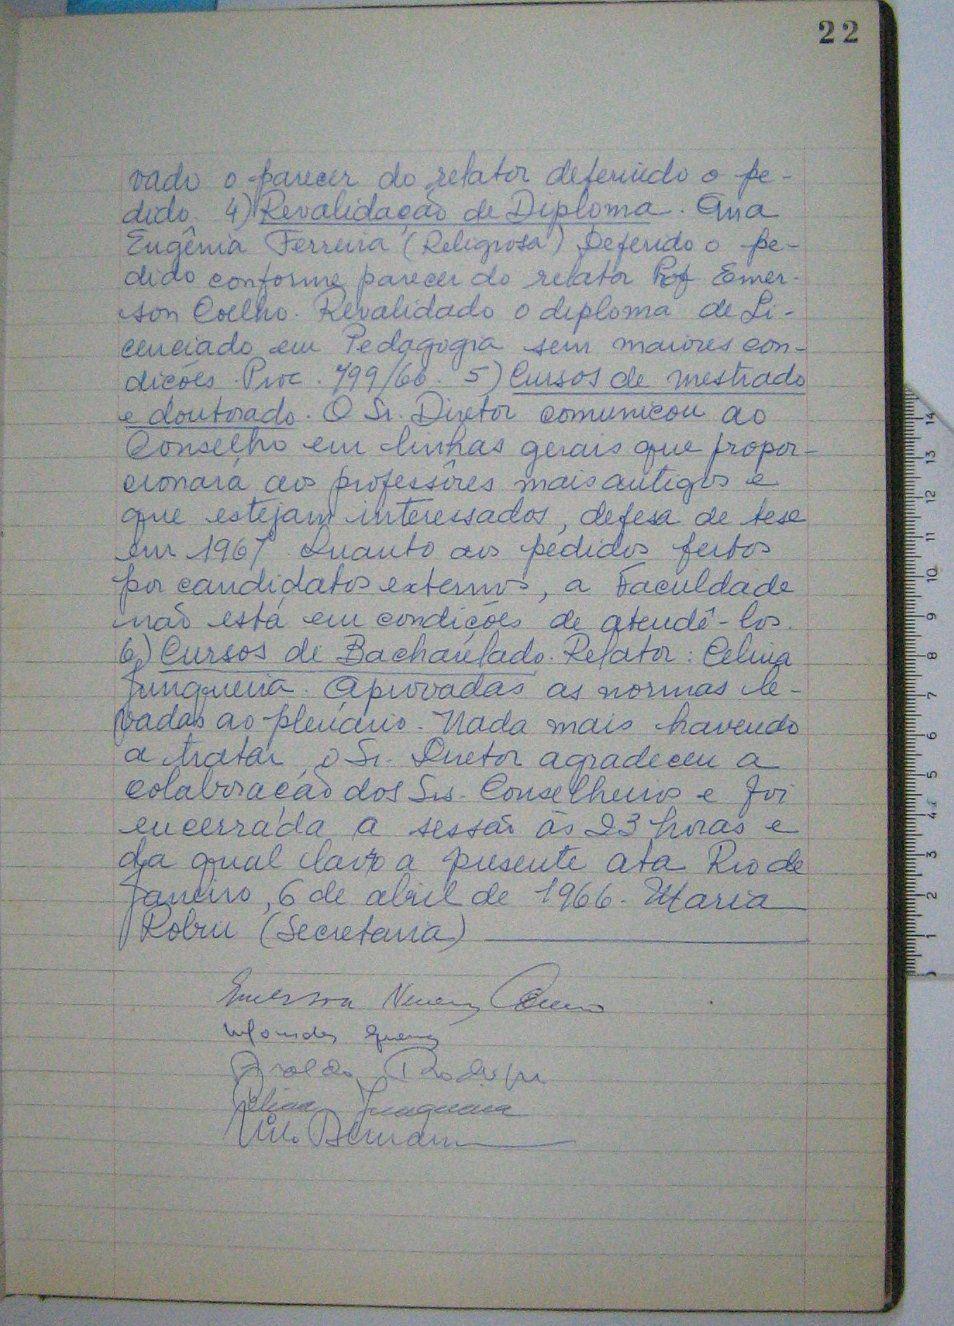 22
vado o parecer do relator deferindo o pe-
dido. 4) Revalidação de Diploma. Ana
Eugênia Ferreira (Religiosa) Deferido o pe-
dido conforme parecer do relator Prof Emer-
son Coelho. Revalidado o diploma de Li-
cenciado em Pedagogia sem maiores con-
dições. Proc. 799/66. 5) Cursos de mestrado
e doutorado. O Sr. Diretor comunicou ao
Conselho em linhas gerais que propor-
cionará aos professôres mais antigos e
que estejam interessados, defesa de tese
em 1967. Quanto aos pedidos feitos
por candidatos externos, a Faculdade
não está em condições de atendê-los.
6) Cursos de Bacharelado. Relator: Celina
Junqueira. Aprovadas as normas le-
vadas ao plenário. Nada mais havendo
a tratar, o Sr. Diretor agradeceu a
colaboração dos Srs. Conselheiros e foi
encerrada a sessão às 23 horas e
da qual lavro a presente ata Rio de
Janeiro, 6 de abril de 1966. Maria
(Secretaria)
Emerson
Aroldo Rodrigues
Celina Junqueira
14
13
12
11
10
9
8
7
6
5
4
3
2
1
0